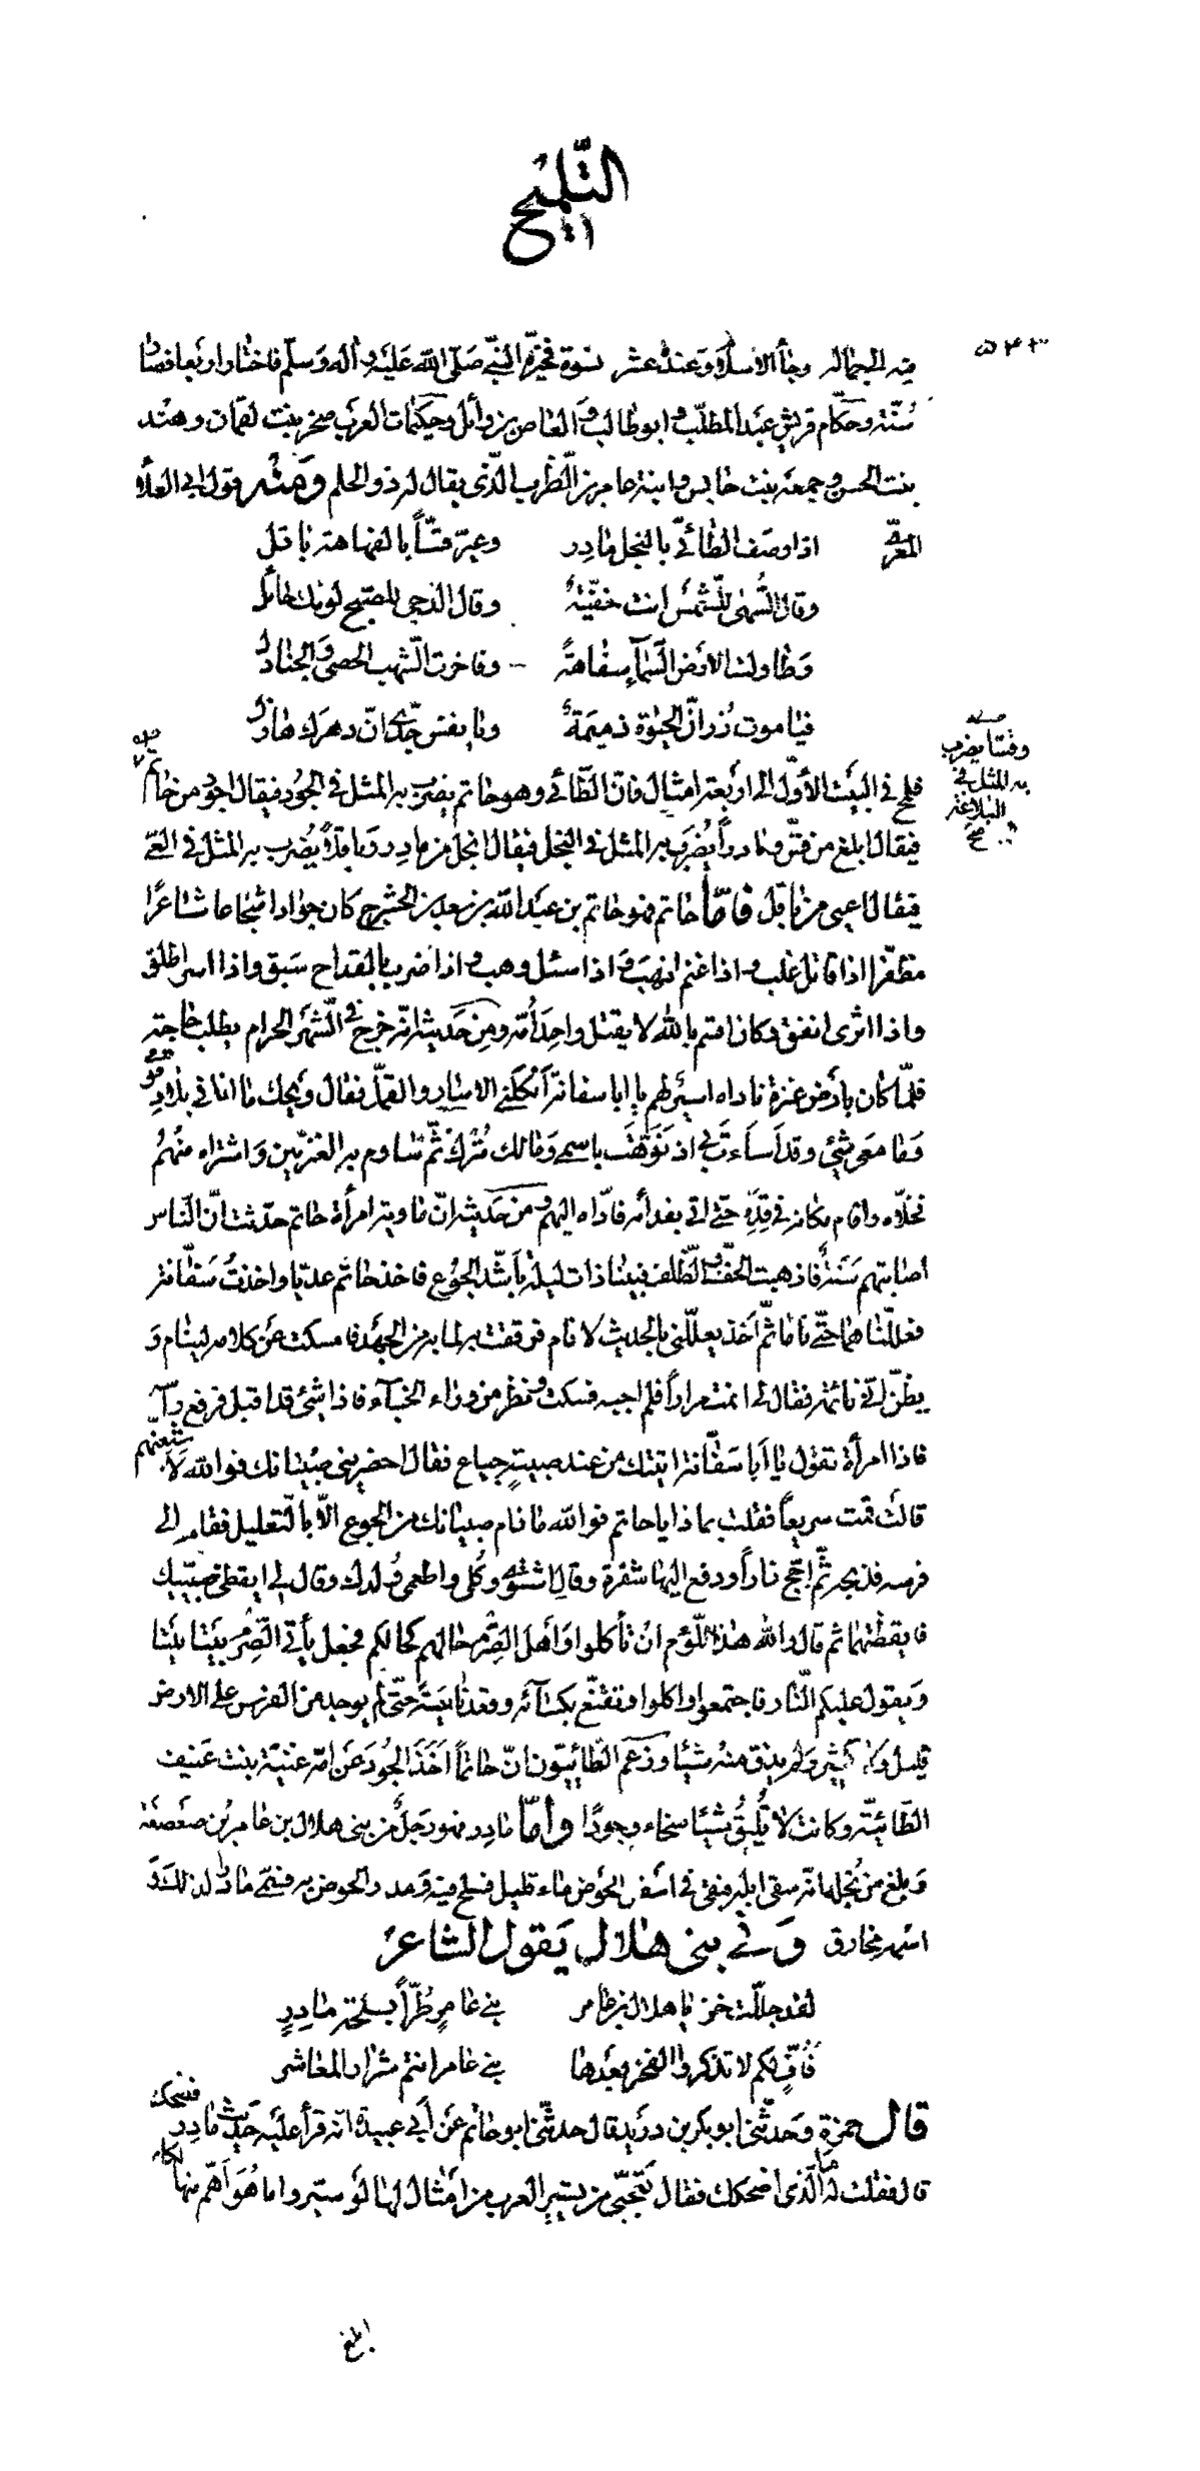 التلميح
فيه الجماله وجاء الاسلام وعنده عشر نسوة فخيره النبي صلى الله عليه وآله وسلم فاختار اربعا فصار
سنة وحكام قريش عبد المطلب وابو طالب والعاص بن وائل وحكيمات العرب صخر بنت لقمان وهند
بنت الخس وجمعة بنت حابس وابنة عامر بن الظرب الذي يقال له ذو الحلم ومنه قول ابي العلاء
المعري اذا وصف الطائي بالبخل مادر وعير قسا بالفهاهة باقل
وقال السهى للشمس انت خفية وقال الدجى للصبح لونك حائل
وطاولت الارض السماء سفاهة وفاخرت الشهب الحصى والجنادل
فيا موت زر ان الحيوة ذميمة ويا نفس جدي ان دهرك هازل
وقسا يضرب
به المثل في
البلاغة
صح
فلمح في البيت الأول الى اربعة امثال فان الطائي وهو حاتم يضرب به المثل في الجود فيقال اجود من حاتم
فيقال ابلغ من قس ومادرا يضرب به المثل في البخل فيقال ابخل من مادر وباقلا يضرب به المثل في العي
فيقال اعيى من باقل فاما حاتم فهو حاتم بن عبد الله بن سعد بن الحشرج كان جوادا شجاعا شاعرا
مظفرا اذا قاتل غلب واذا غنم انهب واذا سئل وهب واذا ضرب بالقداح سبق واذا اسر اطلق
واذا اثرى انفق وكان اقسم بالله لا يقتل واحد امه ومن حديثه انه خرج في الشهر الحرام يطلب حاجة
فلما كان بأرض عنزة ناداه اسير لهم يا ابا سفانة أكلني الاسار والقمل فقال ويحك ما انا في بلاد قومي
وما معي شيء وقد اساءت بي اذ نوهت باسمي ومالك مترك ثم ساوم به العنزيين واشتراه منهم
فخلاه واقام مكانه في قده حتى اتي بفدائه فاداه اليهم ومن حديثه ان ماوية امرأة حاتم حدثت ان الناس
اصابتهم سنة فاذهبت الخف والظلف فبتنا ذات ليلة بأشد الجوع فاخذ حاتم عديا واخذت سفانة
فعللناهما حتى ناما ثم اخذ يعللني بالحديث لانام فرققت له لما به من الجهد فامسكت عن كلامه لينام و
يظن اني نائمة فقال لي انمت مرارا فلم اجبه فسكت ونظر من وراء الخباء فاذا شيء قد اقبل فرفع رأسه
فاذا امرأة تقول يا ابا سفانة اتيتك من عند صبية جياع فقال احضريني صبيانك فوالله لاشبعنهم
قالت قمت سريعا فقلت بماذا يا حاتم فوالله ما نام صبيانك من الجوع الا بالتعليل فقام الى
فرسه فذبحه ثم اجج نارا ودفع اليها شفرة وقال اشتوي وكلي واطعمي ولدك وقال لي ايقظي صبيتك
فايقظتهما ثم قال والله هذا اللؤم ان تأكلوا واهل الصرم حالهم كحالكم فجعل يأتي الصرم بيتا بيتا
ويقول عليكم النار فاجتمعوا واكلوا وتقنع بكسائه وقعد ناحية حتى لم يوجد من الفرس على الارض
قليل ولا كثير ولم يذق منه شيئا وزعم الطائيون ان حاتما اخذ الجود عن امه عنبة بنت عفيف
الطائية وكانت لا تليق شيئا سخاء وجودا واما مادر فهو رجل من بني هلال بن عامر بن صعصعة
وبلغ من بخله انه سقى ابله فبقي في اسفل الحوض ماء قليل فسلح فيه ومدر الحوض به فسمي مادرا لذلك و
اسمه مخارق وفي بني هلال يقول الشاعر
لقد جللت خزيا هلال بن عامر بني عامر طرا بسلحة مادر
فأف لكم لا تذكروا الفخر بعدها بني عامر انتم شرار المعاشر
قال حمزة وحدثني ابو بكر بن دريد قال حدثني ابو حاتم عن أبي عبيدة انه قرأ عليه حديث مادر فضحك
قال فقلت له ما الذي اضحكك فقال تعجبي من تسيير العرب من امثال لها لو سيروا ما هو اهم منها
ابلغ